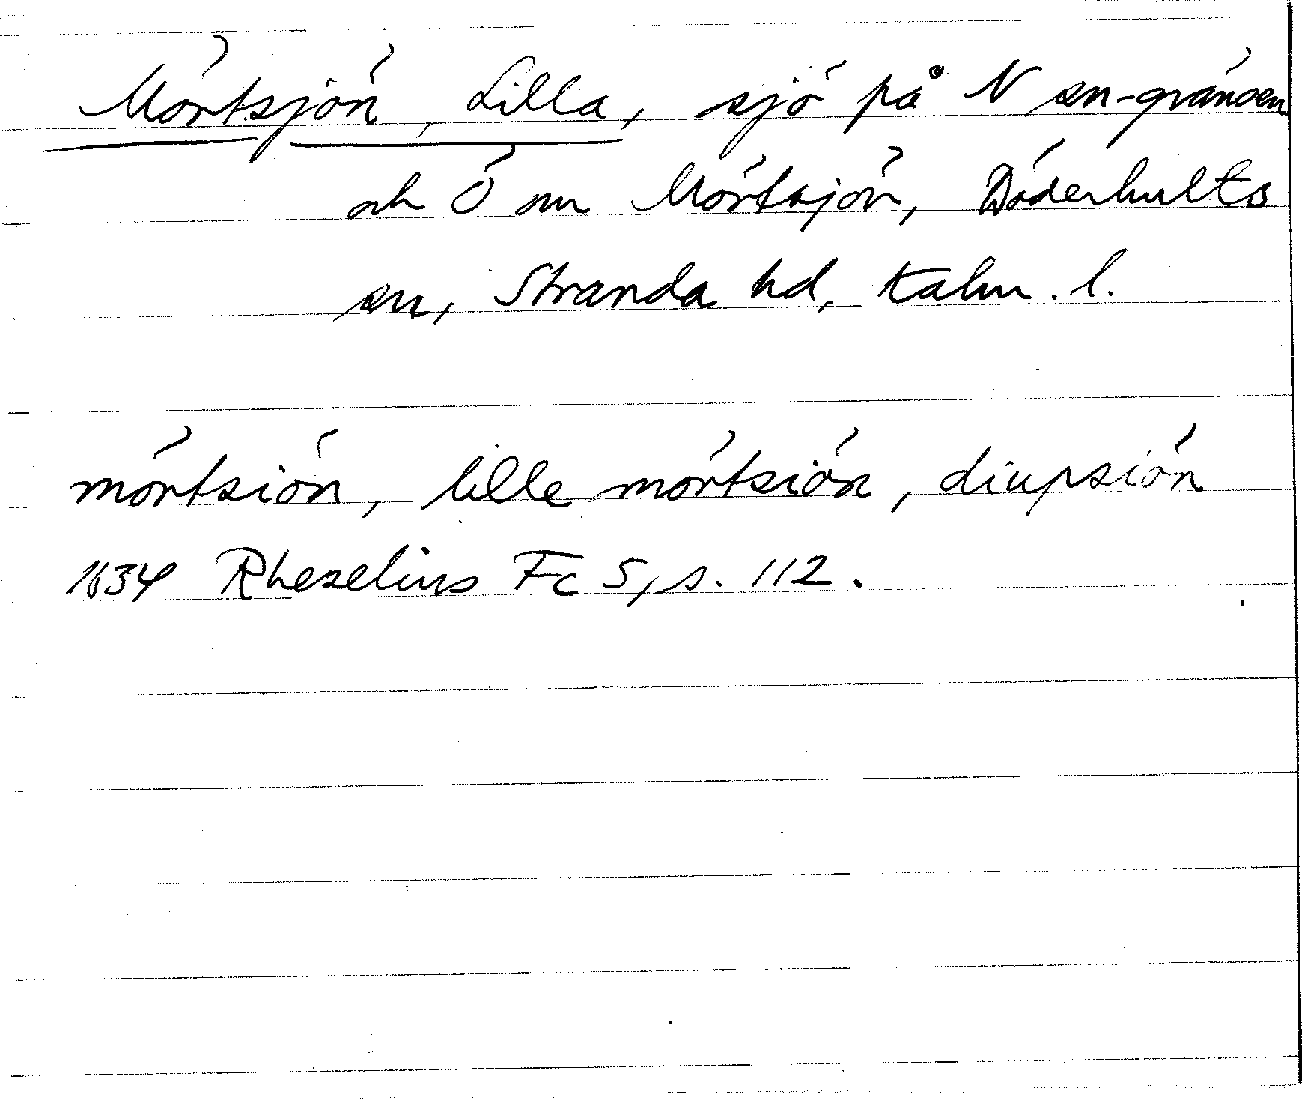 Mörtsjön, Lilla, sjö på N sn-gränsen
och Ö om Mörtsjön, Döderhults
sn, Stranda hd, Kalm. l.
mörtsiön, lille mörtsiön, diupsiön
1634 Rhezelius Fc 5, s. 112.